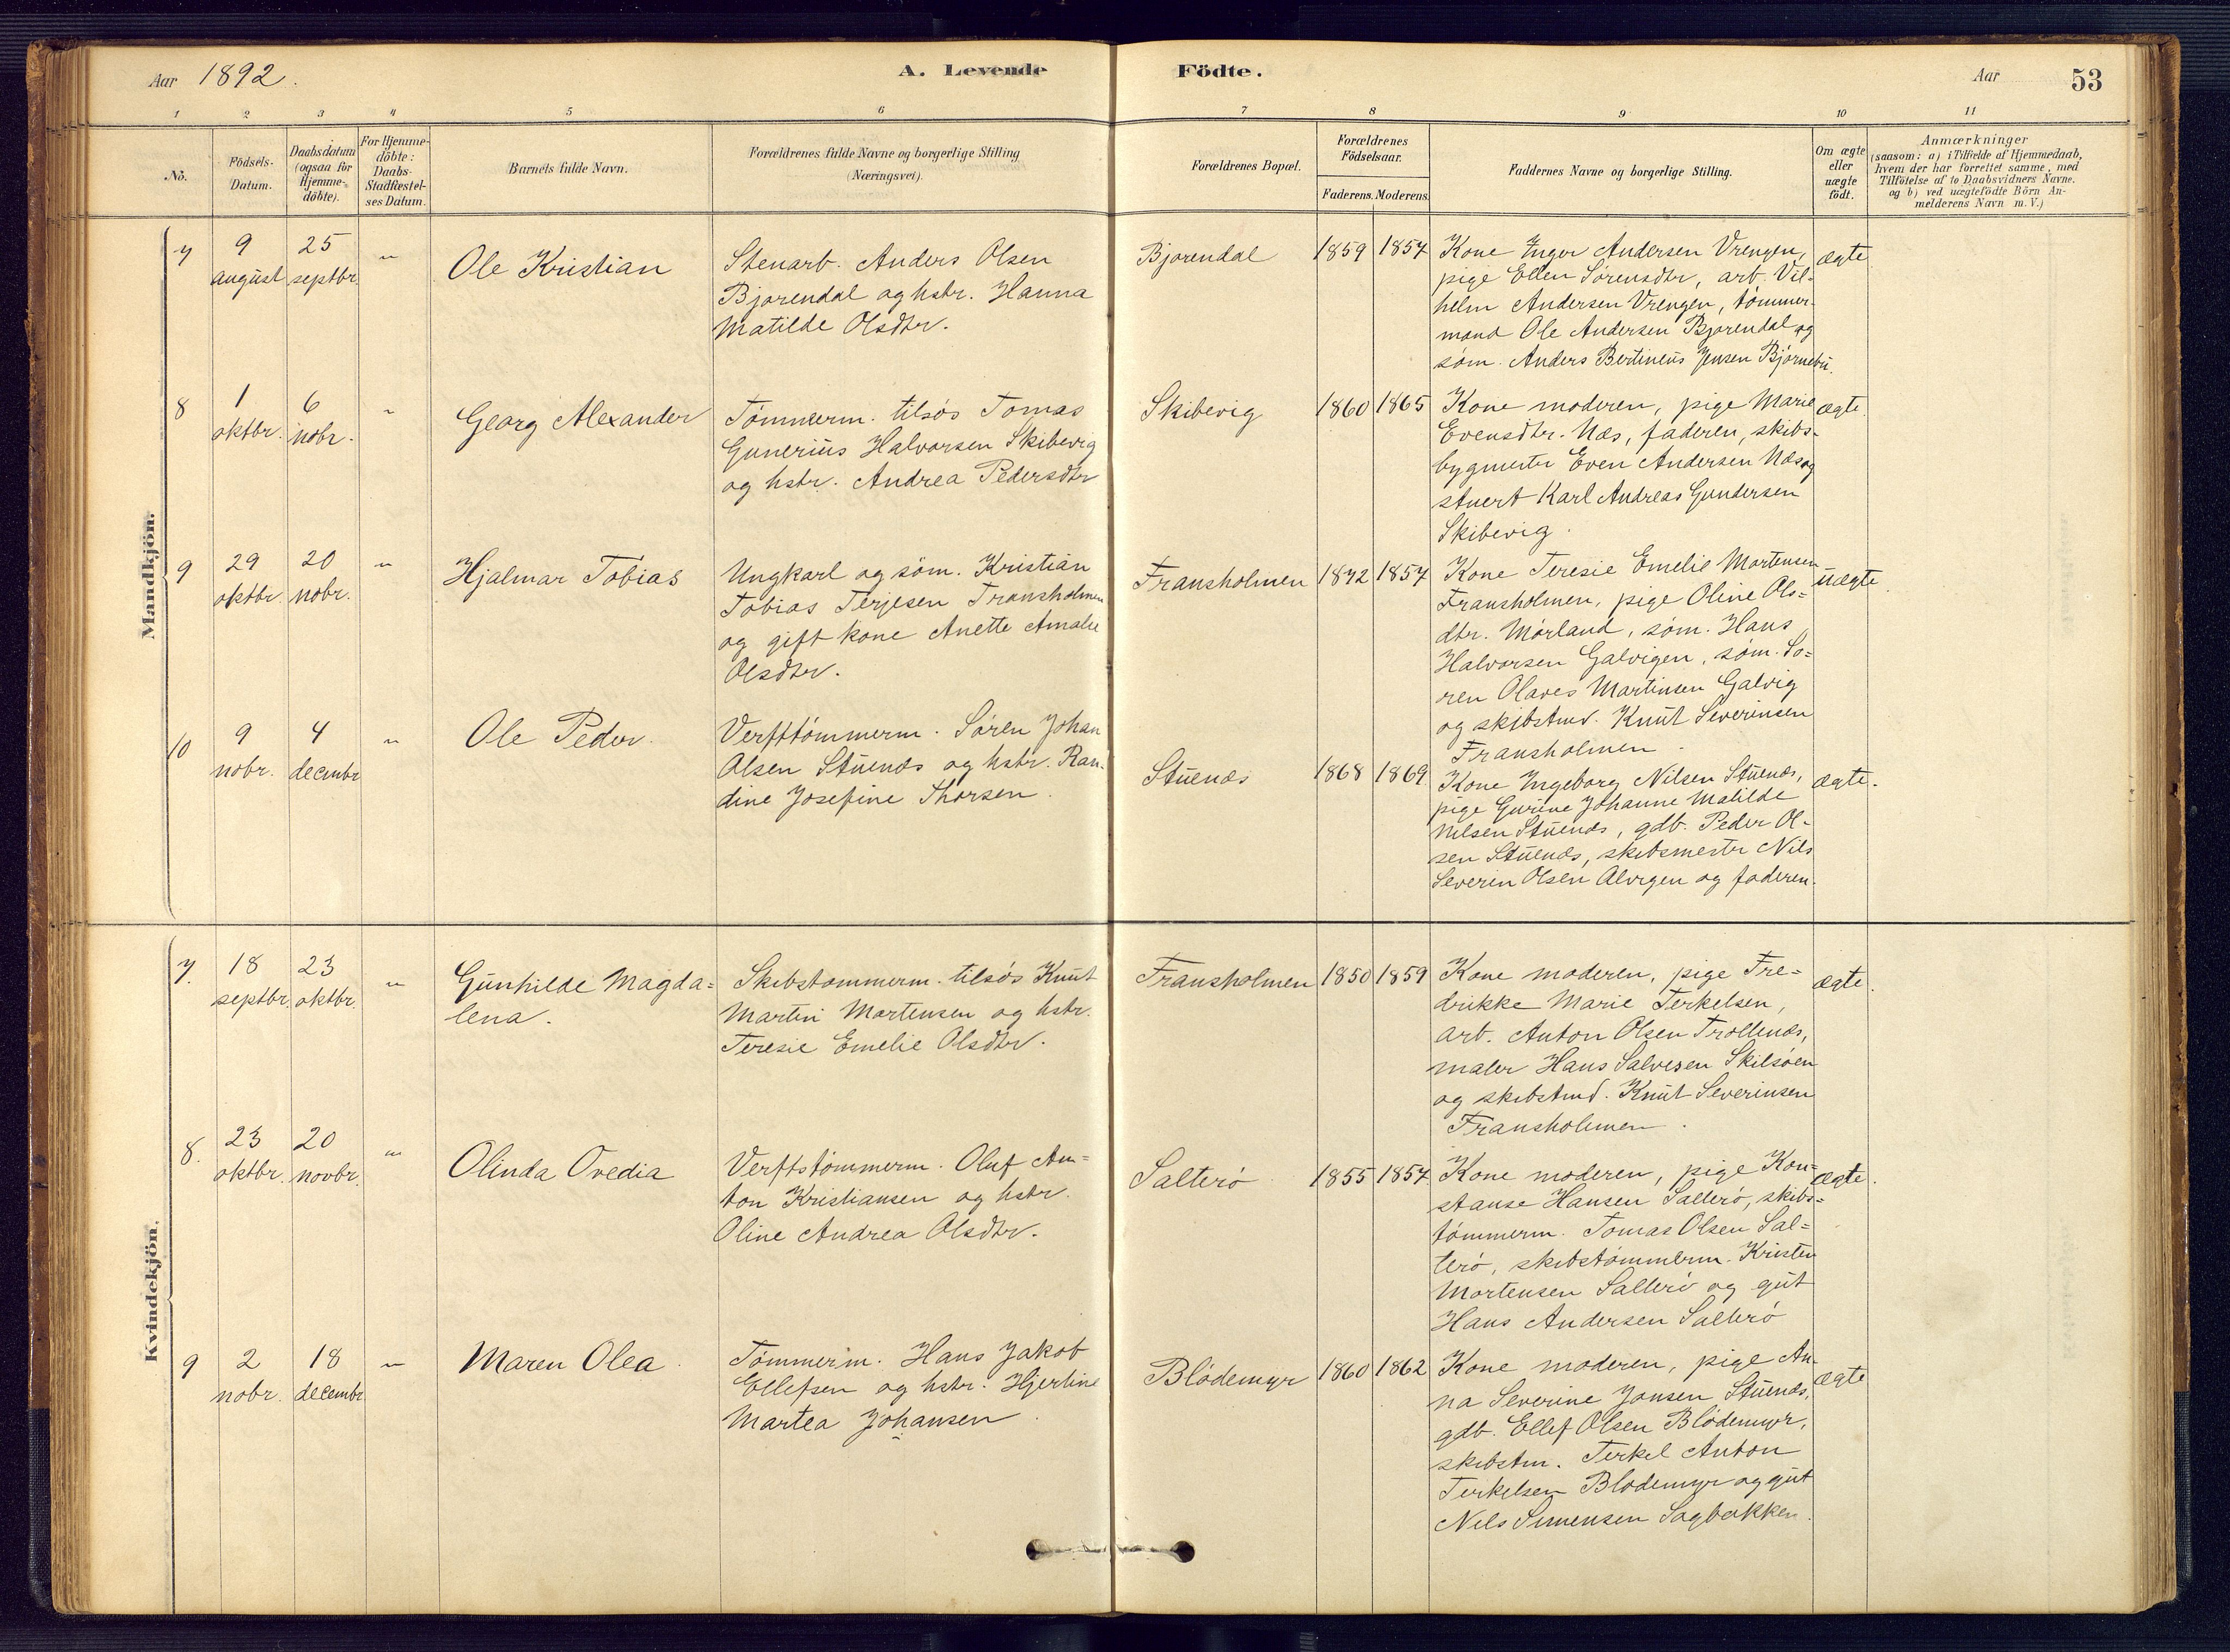 Aar 1892.
A. Levende Födte.
Aar
53
1 2 3 4 5 6 7 8 9 10 11
No.
Födsels-
Datum.
Daabsdatum
(ogsaa for
Hjemme-
döbte).
For Hjemme-
döbte:
Daabs-
Stadfæstel-
ses Datum.
Barnets fulde Navn.
Forældrenes fulde Navne og borgerlige Stilling
(Næringsvei).
Forældrenes Bopæl.
Forældrenes
Födselsaar.
Faderens. Moderens.
Faddernes Navne og borgerlige Stilling.
Om ægte
eller
uægte
födt.
Anmærkninger
(saasom: a) i Tilfælde af Hjemmedaab,
hvem der har forrettet samme, med
Tilföielse af to Daabsvidners Navne.
og b) ved uægtefödte Börn An-
melderens Navn m. V.)
Mandkjön.
7
9
august
25
septbr.
"
Ole Kristian
Stenarb. Anders Olsen
Bjorendal og hstr. Hanna
Matilde Olsdtr.
Bjorendal
1859 1857
Kone Inger Andersen Vrengen,
pige Ellen Sørensdtr, arb. Vil-
helm Andersen Vrengen, tømmer-
mand Ole Andersen Bjorendal og
søm. Anders Bertineus Jensen Bjørnebu.
ægte
8
1
oktbr.
6
nobr.
"
Georg Alexander
Tømmerm. tilsøs Tomas
Gunerius Halvorsen Skibevig
og hstr. Andrea Pedersdtr
Skibevig
1860 1865
Kone moderen, pige Marie
Evensdtr. Næs, faderen, skibs-
bygmester Even Andersen Næs og
stuert Karl Andreas Gundersen
Skibevig.
ægte.
9
29
oktbr.
20
nobr.
"
Hjalmar Tobias
Ungkarl og søm. Kristian
Tobias Terjesen Fransholmen
og gift kone Anette Amalie
Olsdtr.
Fransholmen
1872 1857
Kone Teresie Emelie Mortensen
Fransholmen, pige Oline Ols-
dtr. Mørland, søm. Hans
Halvorsen Galvigen, søm. Sø-
ren Olaves Martinsen Galvig
og skibstmd. Knut Severinsen
Fransholmen.
uægte.
10
9
nobr.
4
decembr
"
Ole Peder.
Verfttømmerm. Søren Johan
Olsen Stuenæs og hstr. Ran-
dine Josefine Thorsen.
Stuenæs
1868 1869
Kone Ingeborg Nilsen Stuenæs,
pige Gurine Johanne Matilde
Nilsen Stuenæs, gdb. Peder Ol-
sen Stuenæs, skibsmester Nils
Severin Olsen Alvigen og faderen.
ægte.
Kvindekjön.
7.
18
septbr.
23
oktbr.
"
Gunhilde Magda-
lena.
Skibstømmerm. tilsøs Knut
Martin Mortensen og hstr.
Teresie Emelie Olsdtr.
Fransholmen
1850 1859
Kone moderen, pige Fre-
drikke Marie Terkelsen,
arb. Anton Olsen Trollenæs,
maler Hans Salvesen Skilsøen
og skibstmd. Knut Severinsen
Fransholmen.
ægte.
8.
23
oktbr.
20
novbr.
"
Olinda Ovedia
Verftstømmerm. Oluf An-
ton Kristiansen og hstr.
Oline Andrea Olsdtr.
Salterø
1855 1857
Kone moderen, pige Kon-
stanse Hansen Salterø, skibs-
tømmerm. Tomas Olsen Sal-
terø, skibstømmerm. Kristen
Mortensen Salterø og gut
Hans Andersen Salterø
ægte.
9
2
nobr.
18
decembr
"
Maren Olea.
Tømmerm. Hans Jakob
Ellefsen og hstr. Hjertine
Martea Johansen.
Blødemyr
1860 1862
Kone moderen, pige An-
na Severine Jonsen Stuenæs,
gdb. Ellef Olsen Blødemyr,
skibstm. Terkel Anton
Terkelsen Blødemyr og gut
Nils Simensen Sagbakken.
ægte